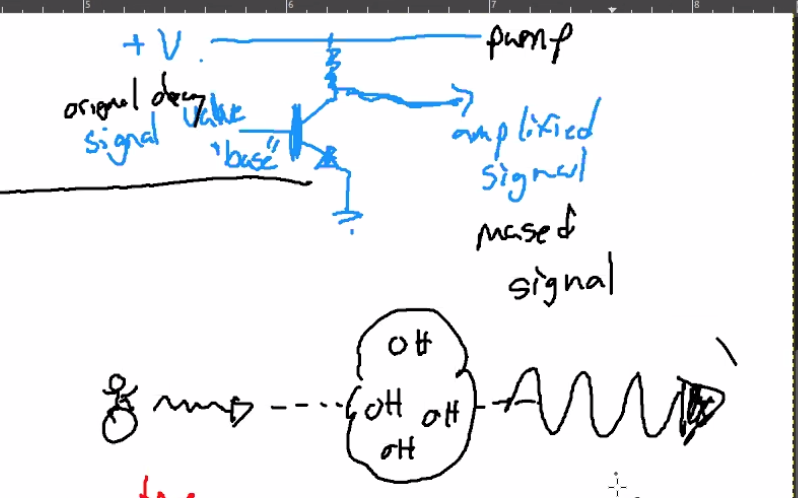 5 6 7 8
+ V
pump
orignal decay
signal
valve
"base"
amplified
signal
mased
signal
OH
OH OH
OH